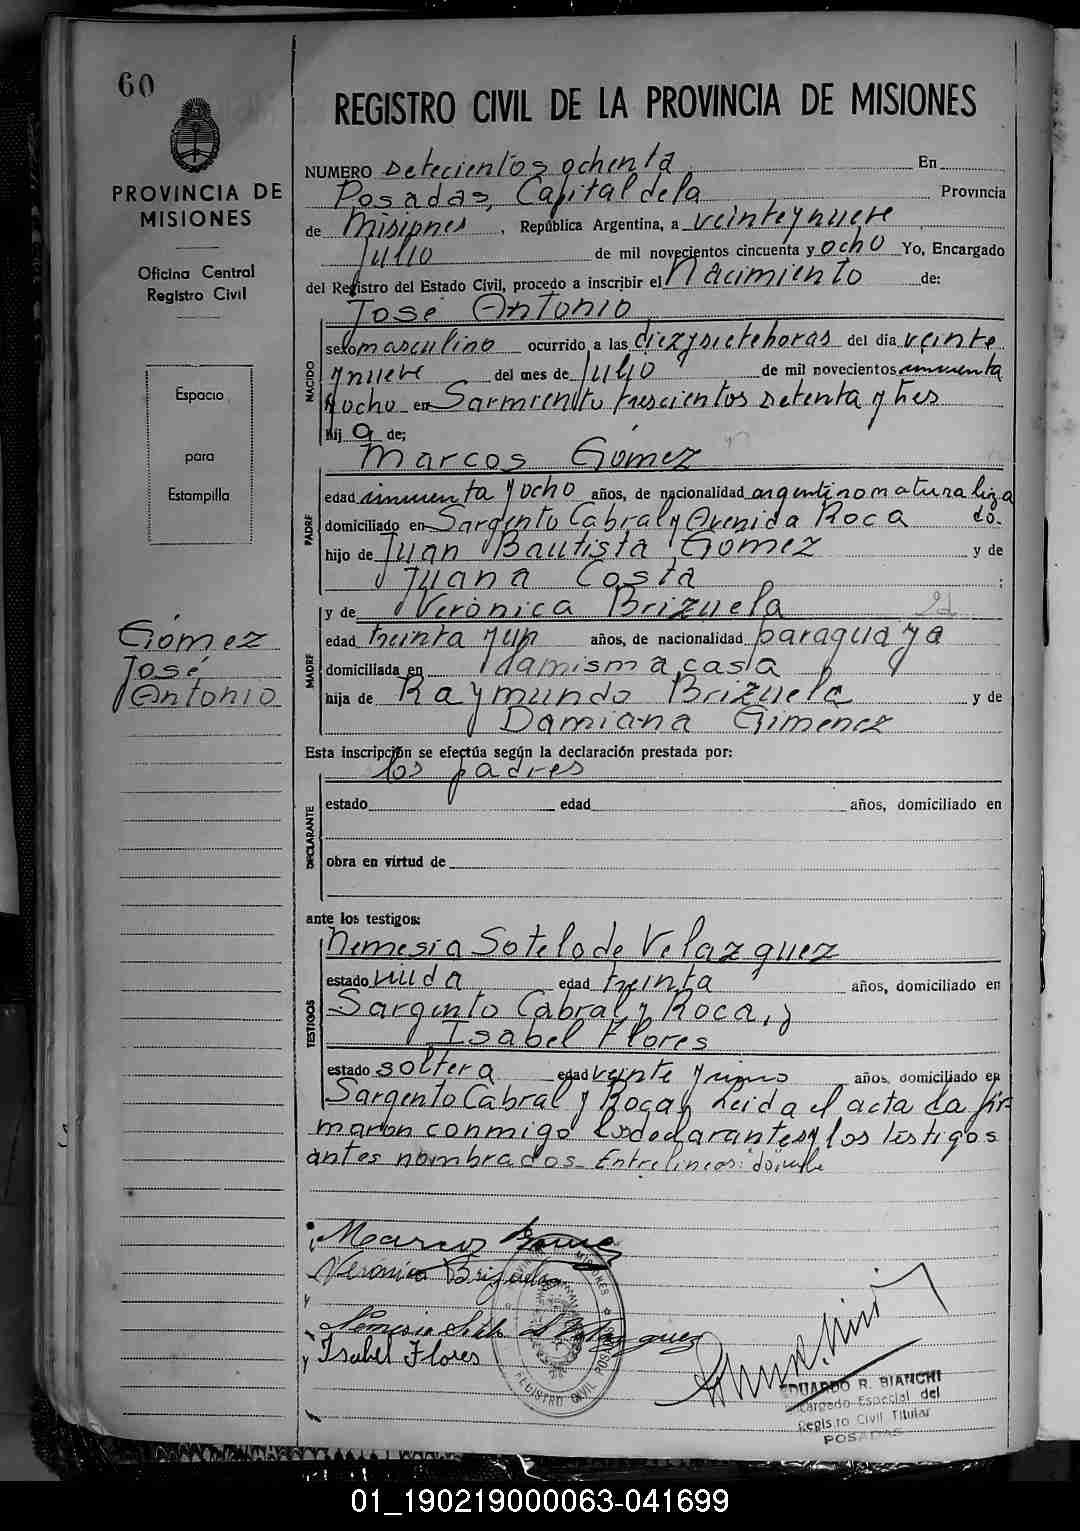 60
PROVINCIA DE
MISIONES
Oficina Central
Registro Civil
Espacio
para
Estampilla
Gómez
José
Antonio
REGISTRO CIVIL DE LA PROVINCIA DE MISIONES
NUMERO Setecientos ochenta En
Posadas, Capital de la Provincia
de Misiones, República Argentina, a veinte y nueve
Julio de mil novecientos cincuenta y ocho Yo, Encargado
del Registro del Estado Civil, procedo a inscribir el Nacimiento de:
José Antonio
NACIDO
sexo masculino ocurrido a las diez y siete horas del día veinte
y nueve del mes de Julio de mil novecientos cincuenta
y ocho en Sarmiento trescientos setenta y tres
hij o de;
Marcos Gómez
PADRE
edad cincuenta y ocho años, de nacionalidad argentino naturaliza
domiciliado en Sargento Cabral y Avenida Roca do.
hijo de Juan Bautista Gómez y de
Juana Costa ;
y de Verónica Brizuela
MADRE
edad treinta y un años, de nacionalidad paraguaya
domiciliada en la misma casa
hija de Raymundo Brizuela y de
Damiana Gimenez
Esta inscripción se efectúa según la declaración prestada por:
los padres
DECLARANTE
estado edad años, domiciliado en
obra en virtud de
ante los testigos:
Nemesia Sotelo de Velazquez
TESTIGOS
estado viuda edad treinta años, domiciliado en
Sargento Cabral y Roca, y
Isabel Flores
estado soltera edad veinte y años, domiciliado en
Sargento Cabral y Roca, Leida el acta la fir
maron conmigo los declarantes y los testigos
antes nombrados. Entrelineas:
Marcos Gomez
Verónica Brizuela
Nemesia Sotelo de Velazquez
Isabel Flores
MISIONES
REGISTRO CIVIL POSADAS
EDUARDO R. BIANCHI
Encargado Especial del
Registro Civil Titular
POSADAS
01_190219000063-041699